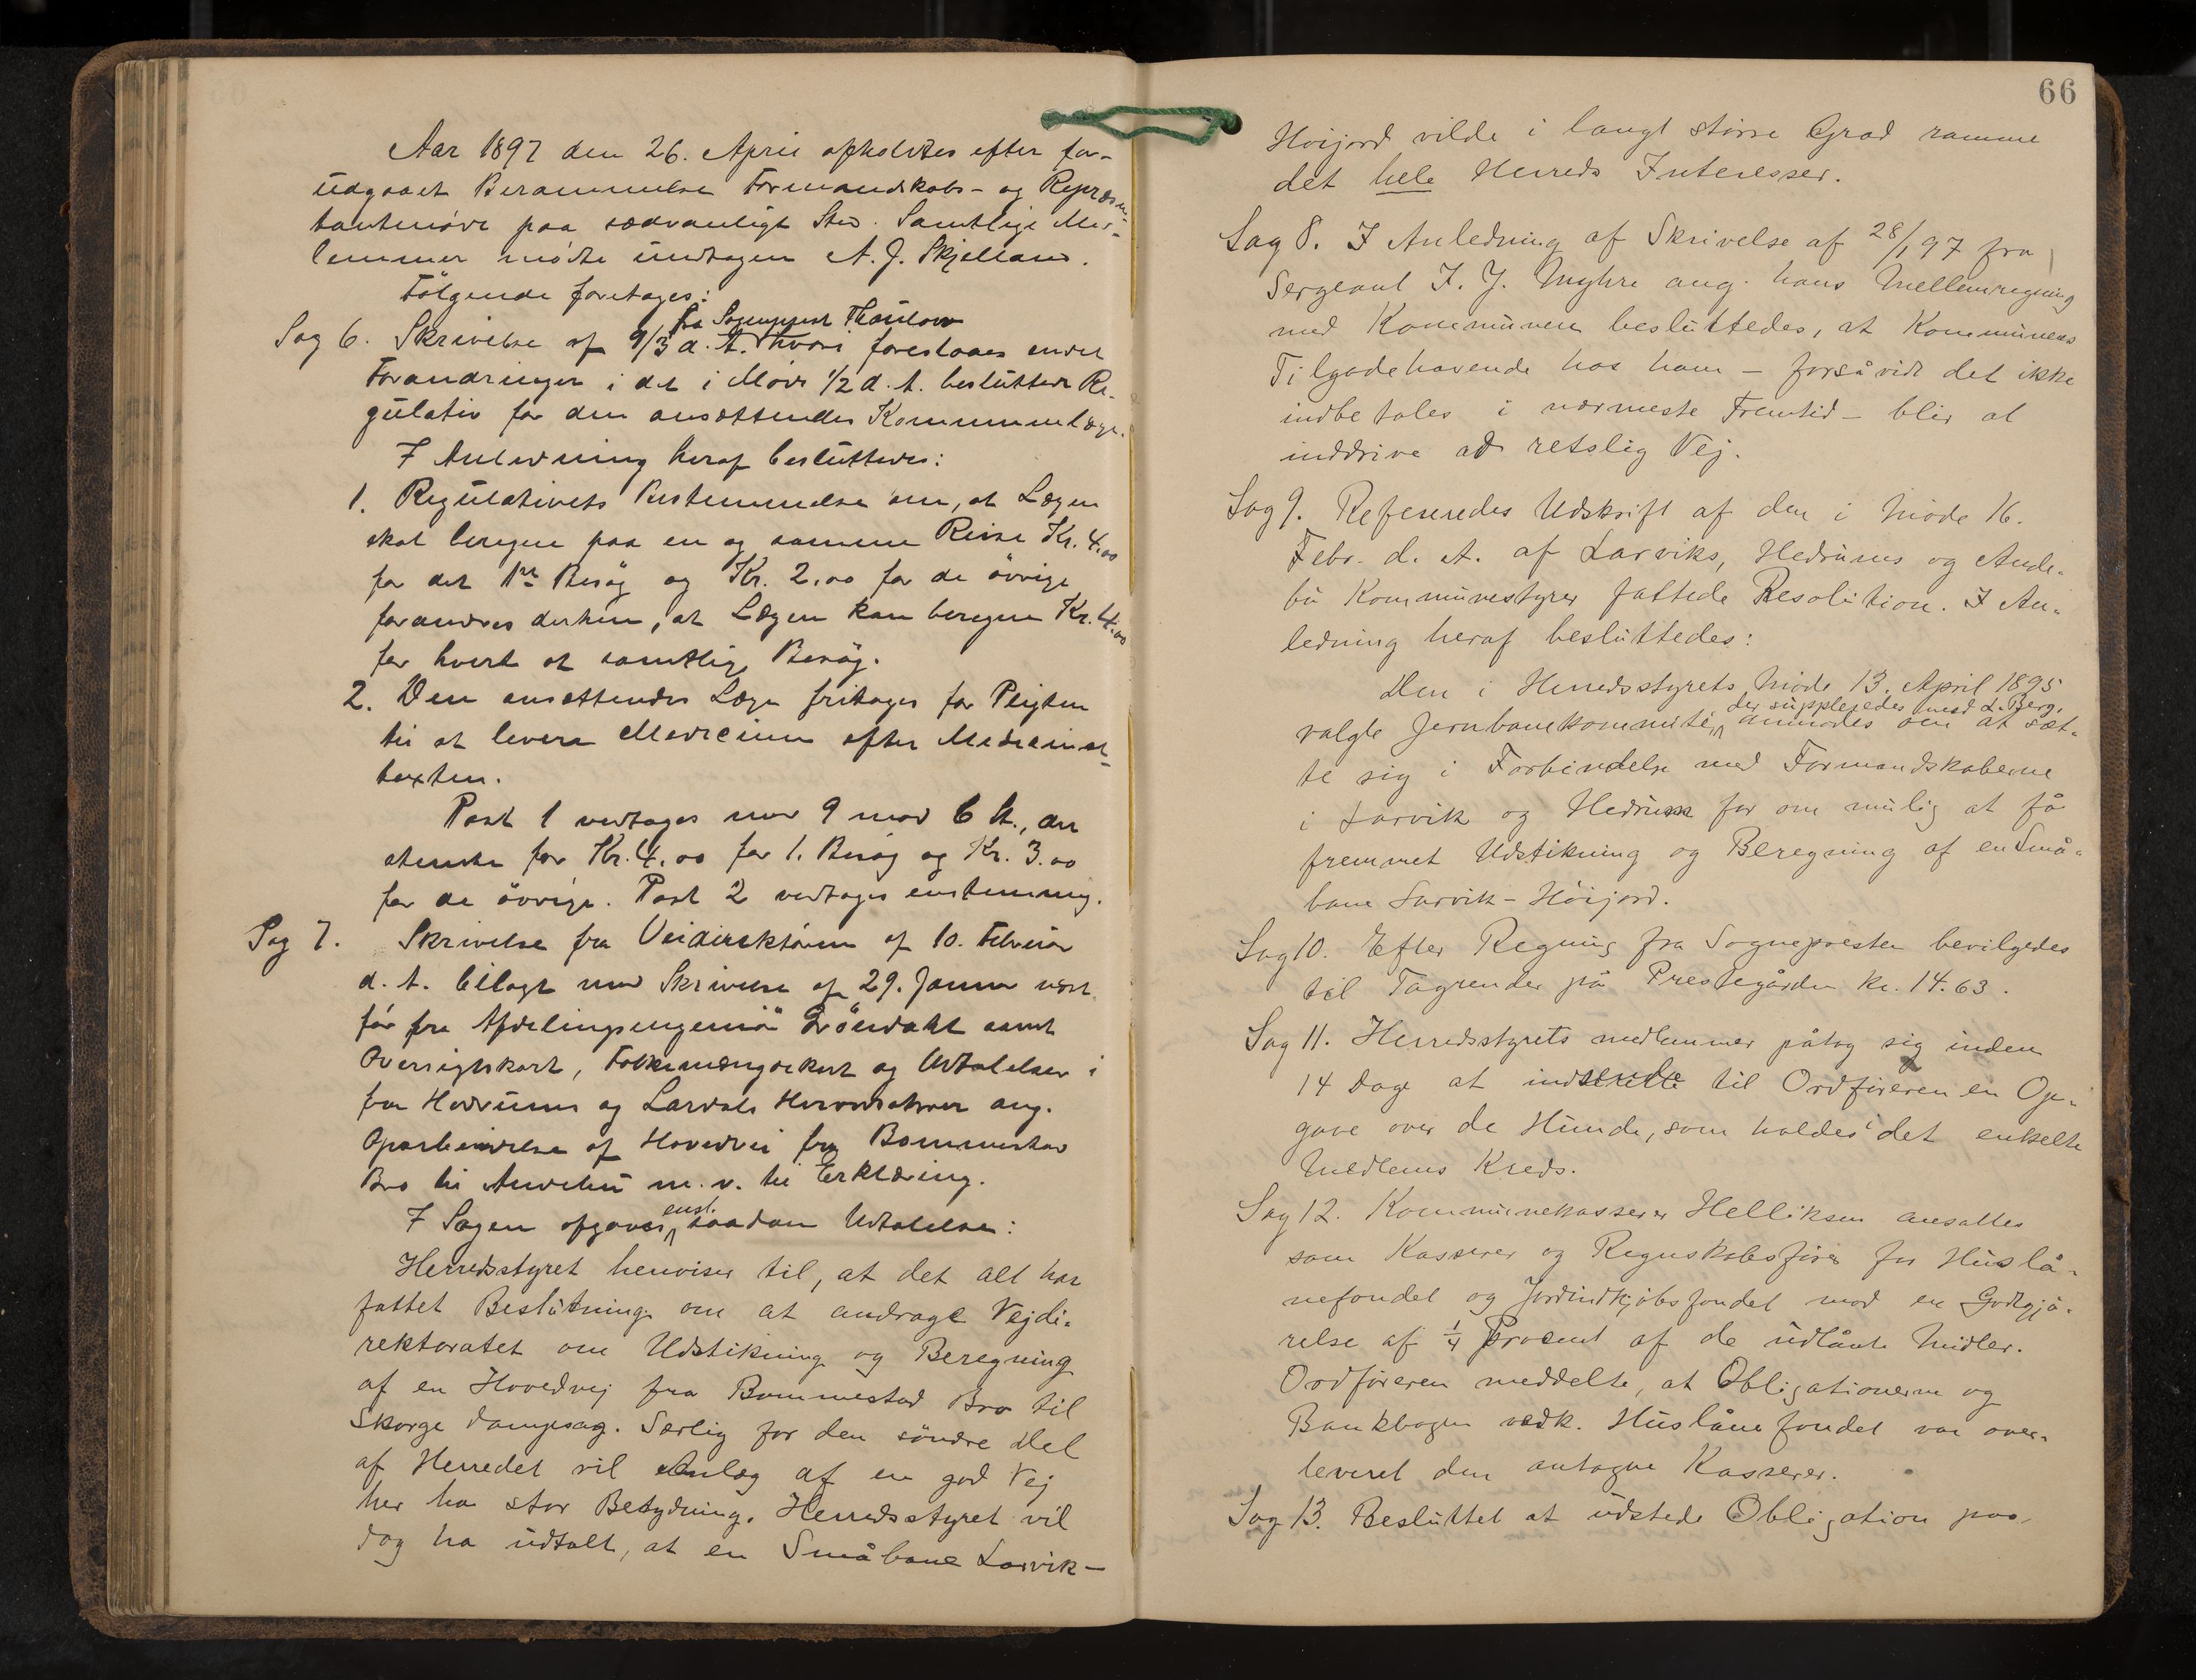 Aar 1897 den 26. April afholdtes efter for-
udgaaet Berammelse Formandskabs- og Repræsen-
tantmøde paa sædvanligt Sted. Samtlige Med-
lemmer mødte undtagen A. J. Skjelland.
Følgende foretoges:
fra Sogneprest Thaulow
Sag 6. Skrivelse af 9/3 d. A. hvori foreslaaes endel
Forandringer i det i Møde 1/2 d. A. besluttede Re-
gulativ for den ansættendes Kommunelæge.
I Anledning heraf besluttedes:
1. Regulativets Bestemmelse om, at Lægen
skal beregne paa en og samme Reise Kr. 4.00
for det 1ste Besøg og Kr. 2.00 for de øvrige
forandres derhen, at Lægen kan beregne Kr. 4.00
for hvert et samtlig Besøg.
2. Den ansættendes Læge fritages for Pligten
til at levere Medicinen efter Medicinal-
taxten.
Post 1 vedtages med 9 mod 6 St., der
stemte for Kr. 4.00 for 1. Besøg og Kr. 3.00
for de øvrige. Post 2 vedtages enstemmig.
Sag 7. Skrivelse fra Veidirektøren af 10. Februar
d. A. bilagt med Skrivelse af 29. Januar næst
før fra Afdelingsingeniør Grøndahl samt
Oversigtskart, Folkemængdekart og Udtalelser
fra Hedrums og Lardals Herredsstyrer ang.
Oparbeidelse af Hovedvei fra Bommestad
Bro til Andebu m. v. til Erklæring.
enst.
I Sagen afgaves saadan Udtalelse:
Herredsstyret henviser til, at det alt har
fattet Beslutning om at andrage Vejdi-
rektoratet om Udstikning og Beregning
af en Hovedvej fra Bommestad Bro til
Skorge Dampsag. Særlig for den søndre Del
af Herredet vil Anlæg af en god Vej
her ha stor Betydning. Herredsstyret vil
dog ha udtalt, at en Småbane Larvik-
66
Høijord vilde i langt større Grad ramme
det hele Herreds Interesser.
Sag 8. I Anledning af Skrivelse af 28/1 97 fra
Sergeant I. J. Myhre ang. hans Mellemregning
med Kommunen besluttedes, at Kommunens
Tilgodehavende hos ham - forsåvidt det ikke
indbetales i nærmeste Fremtid - blir at
inddrive ad retslig Vej.
Sag 9. Refereredes Udskrift af den i Møde 16.
Febr. d. A. af Larviks, Hedrums og Ande-
bu Kommunestyrer fattede Resolution. I An-
ledning heraf besluttedes:
Den i Herredsstyrets Møde 13. April 1895
der suppleredes med L. Berg,
valgte Jernbanekommite anmodes om at sæt-
te sig i Forbindelse med Formandskaberne
i Larvik og Hedrum for om mulig at få
fremmet Udstikning og Beregning af en Små-
bane Larvik - Høijord.
Sag 10. Efter Regning fra Sognepresten bevilgedes
til Tagrender på Prestegården Kr. 14.63.
Sag 11. Herredsstyrets medlemmer påtog sig inden
14 Dage at indsende til Ordføreren en Op-
gave over de Hunde, som holdes i det enkelte
Medlems Kreds.
Sag 12. Kommunekasserer Helliksen ansattes
som Kasserer og Regnskabsfører for Huslå-
nefondet og Jordindkjøbsfondet mod en Godtgjø-
relse af 1/4 Procent af de udlånte Midler.
Ordføreren meddelte, at Obligationerne og
Bankbogen vedk. Huslånefondet var over-
leveret den antagne Kasserer.
Sag 13. Besluttet at udstede Obligation paa